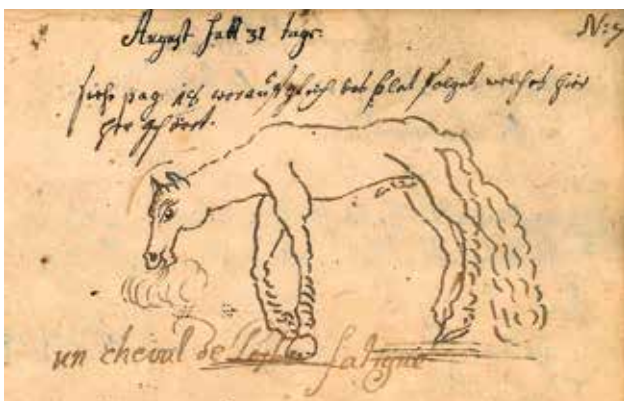 August hatt 31 tage.
siehe pag. worauf gleich das blat folget, welches hier
her gehört.
un cheval de fatigue